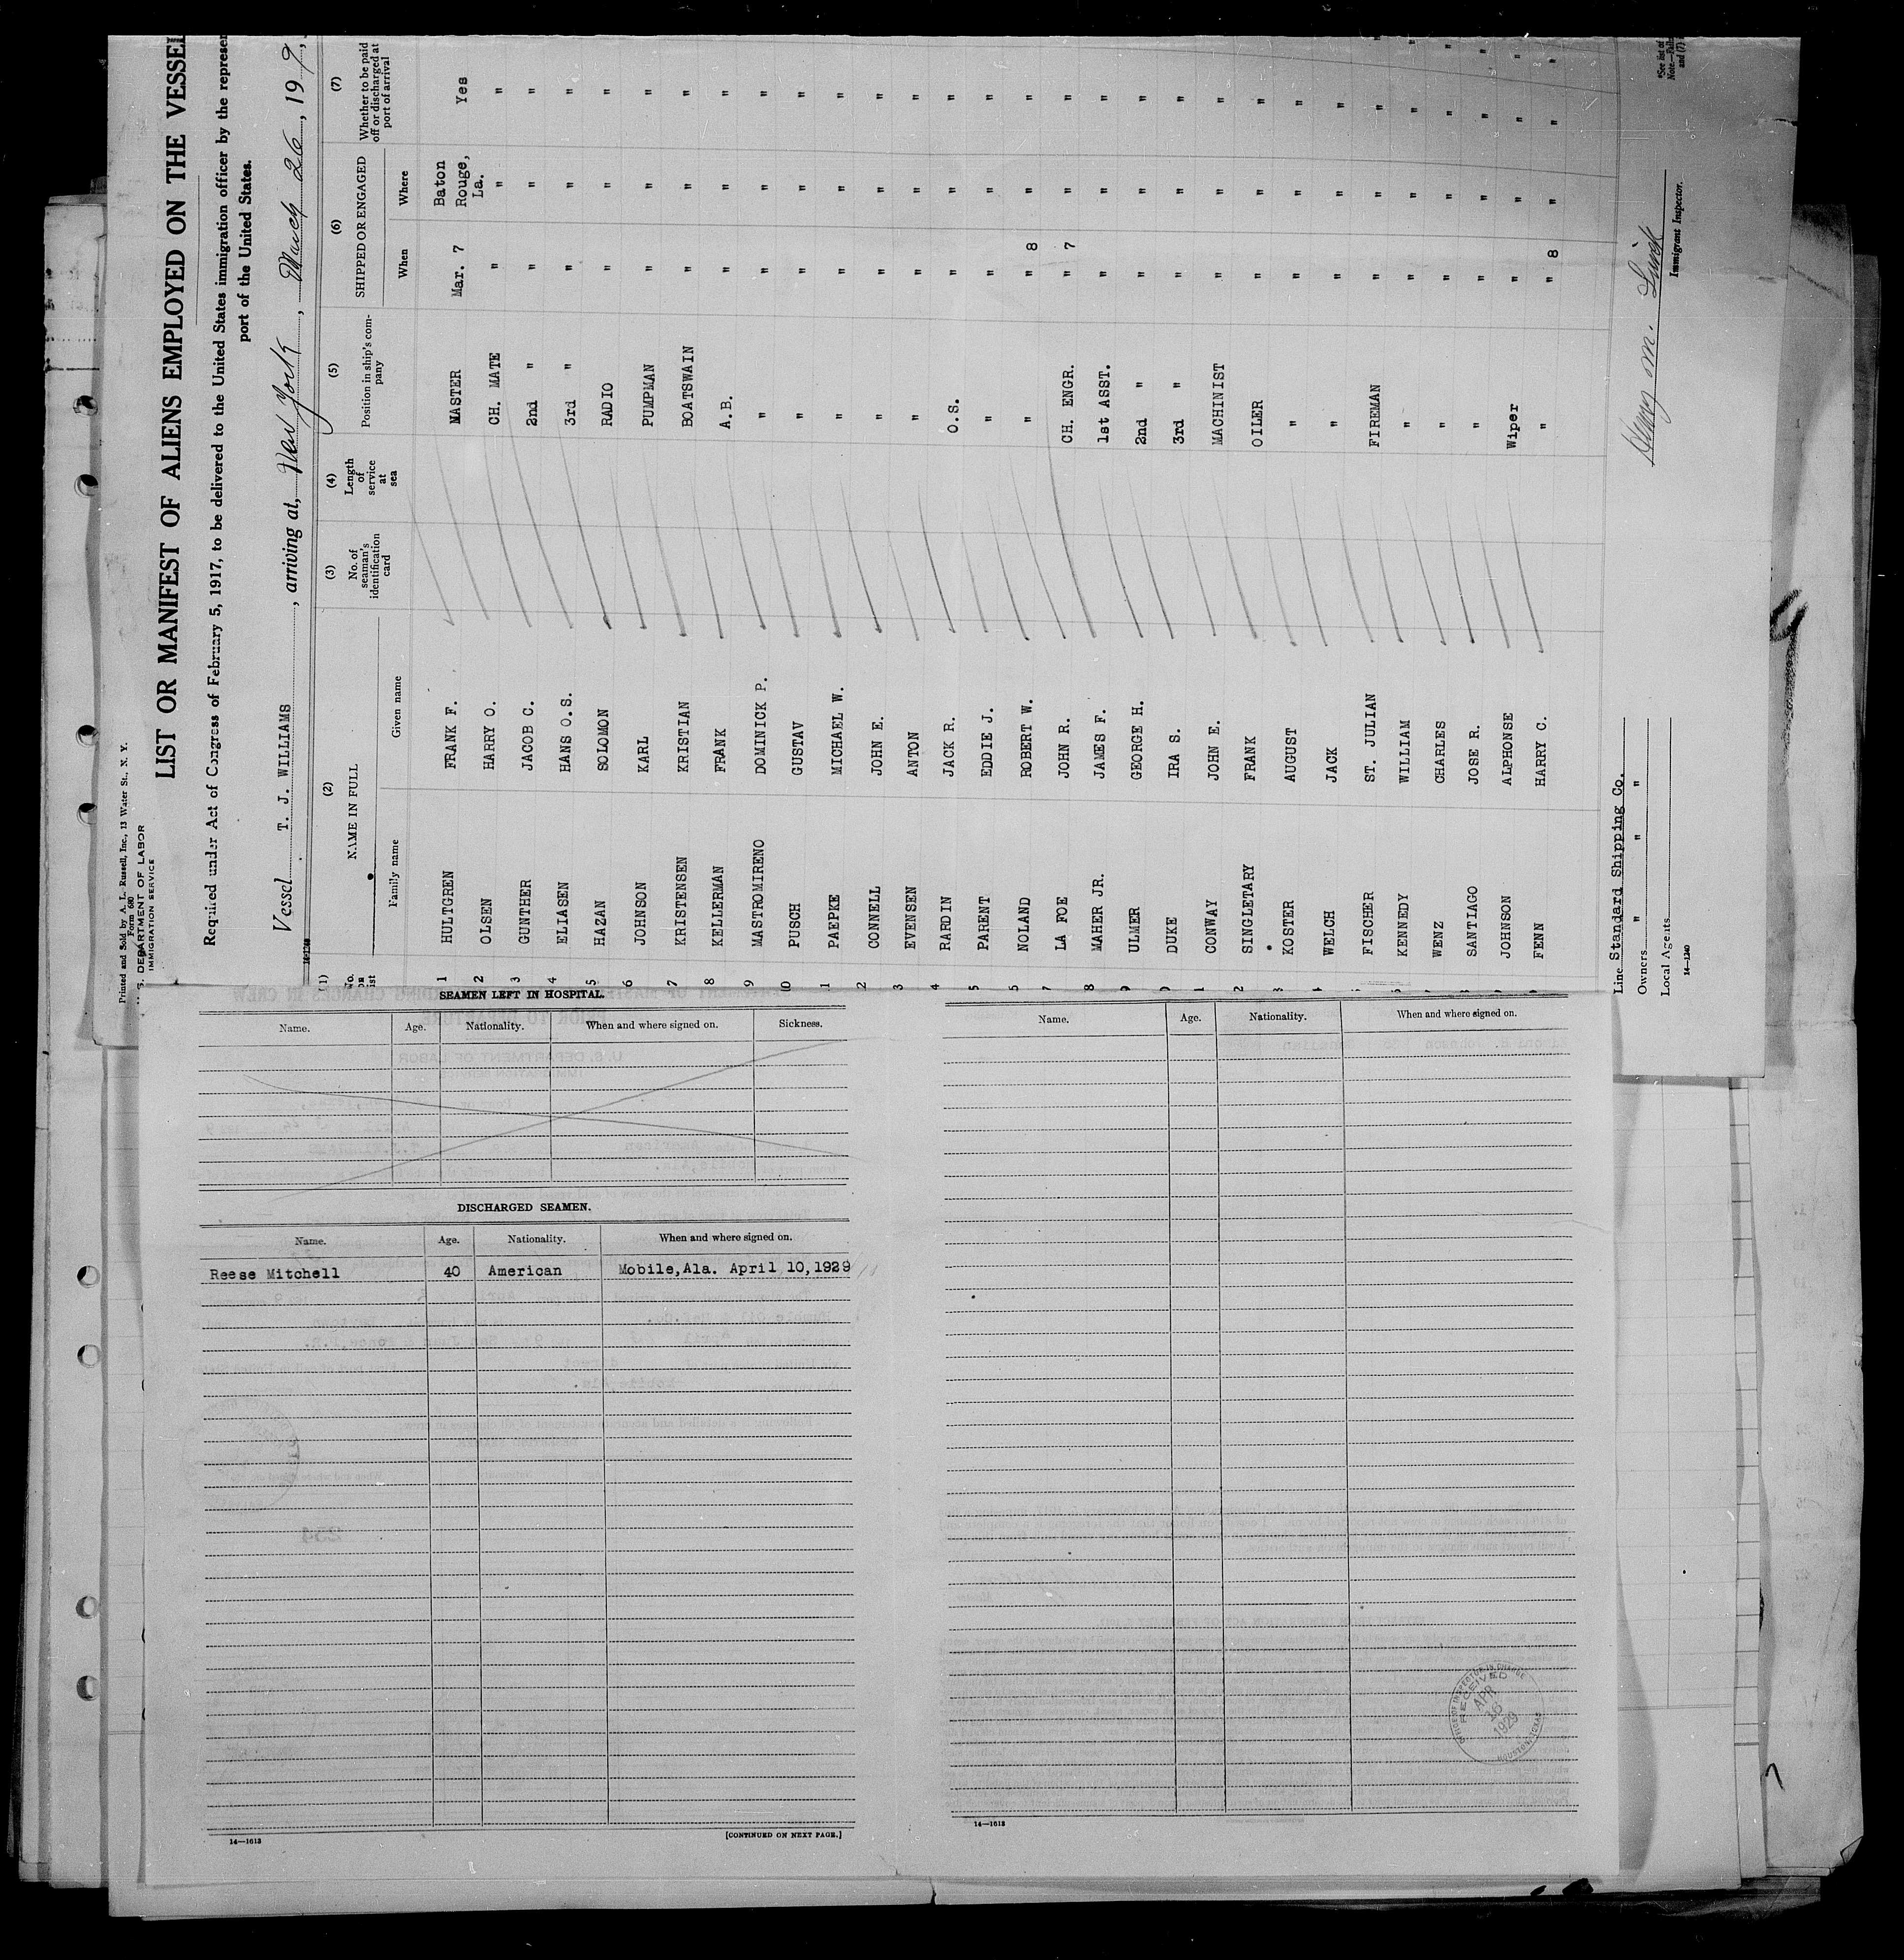 Printed and Sold by A. L. Russell, Inc., 13 Water St., N. Y.
Form 680
U. S. DEPARTMENT OF LABOR
IMMIGRATION SERVICE
LIST OR MANIFEST OF ALIENS EMPLOYED ON THE VESSEL
Required under Act of Congress of February 5, 1917, to be delivered to the United States immigration officer by the represen
port of the United States.
Vessel T. J. WILLIAMS, arriving at, New York, March 26, 19
14-1240
(1) (2) (3) (4) (5) (6) (7)
No. on list NAME IN FULL No. of seaman's identification card Length of service at sea Position in ship's company SHIPPED OR ENGAGED Whether to be paid off or discharged at port of arrival
Family name Given name When Where
1 HULTGREN FRANK F. MASTER Mar. 7 Baton Rouge, La. Yes
2 OLSEN HARRY O. CH. MATE " " "
3 GUNTHER JACOB C. 2nd " " " "
4 ELIASEN HANS O.S. 3rd " " " "
5 HAZAN SOLOMON RADIO " " "
6 JOHNSON KARL PUMPMAN " " "
7 KRISTENSEN KRISTIAN BOATSWAIN " " "
8 KELLERMAN FRANK A.B. " " "
9 MASTROMIRENO DOMINICK P. " " " "
0 PUSCH GUSTAV " " " "
1 PAEPKE MICHAEL W. " " " "
2 CONNELL JOHN E. " " " "
3 EVENSEN ANTON " " " "
4 RARDIN JACK R. O.S. " " "
5 PARENT EDDIE J. " " " "
5 NOLAND ROBERT W. " " 8 " "
7 LA FOE JOHN R. CH. ENGR. " 7 " "
8 MAHER JR. JAMES F. 1st ASST. " " "
9 ULMER GEORGE H. 2nd " " " "
0 DUKE IRA S. 3rd " " " "
1 CONWAY JOHN E. MACHINIST " " "
2 SINGLETARY FRANK OILER " " "
3 KOSTER AUGUST " " " "
4 WELCH JACK " " " "
FISCHER ST. JULIAN FIREMAN " " "
KENNEDY WILLIAM " " " "
WENZ CHARLES " " " "
SANTIAGO JOSE R. " " " "
JOHNSON ALPHONSE Wiper " " "
FENN HARRY C. " " 8 " "
Line Standard Shipping Co.
Owners " " "
Local Agents
14-1240
Immigrant Inspector.
*See list of
Note.—
and (7)
SEAMEN LEFT IN HOSPITAL.
Name. Age. Nationality. When and where signed on. Sickness.
DISCHARGED SEAMEN.
Name. Age. Nationality. When and where signed on.
Reese Mitchell 40 American Mobile, Ala. April 10, 1929
14—1613
[CONTINUED ON NEXT PAGE.]
Name. Age. Nationality. When and where signed on.
14—1613
OFFICE OF INSPECTOR IN CHARGE
RECEIVED
APR
16
1929
HOUSTON, TEXAS